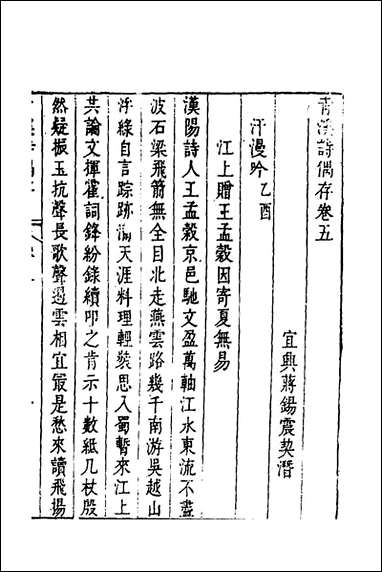 青溪詩偶存卷五
宜興蔣錫震契潛
汗漫吟乙酉
江上贈王孟穀因寄夏無易
漢陽詩人王孟穀京邑馳文盈萬軸江水東流不盡
波石梁飛箭無全目北走燕雲路幾千南游吳越山
浮綠自言踪跡滿天涯料理輕裝思入蜀暫來江上
共論文揮霍詞鋒紛錄續叩之肯示十數紙几杖殷
然疑振玉抗聲長歌聲遏雲相宜最是愁來讀飛揚